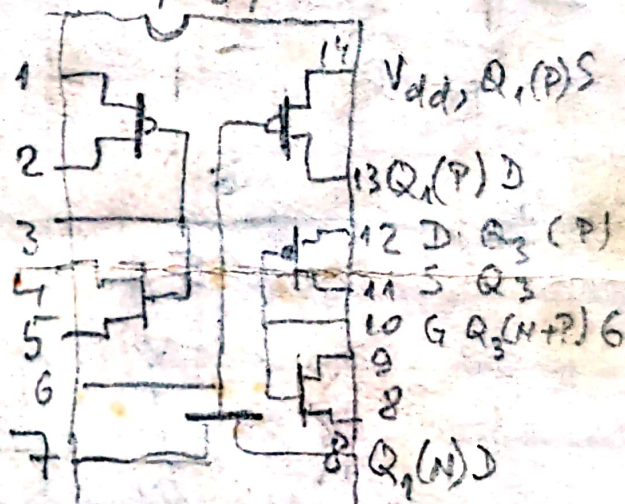 1
2
3
4
5
6
7
14 Vdd, Q1(P)S
13 Q1(P) D
12 D. Q3 (P)
11 S Q3
10 G Q3(N+P) G
9
8
8 Q1(N)D